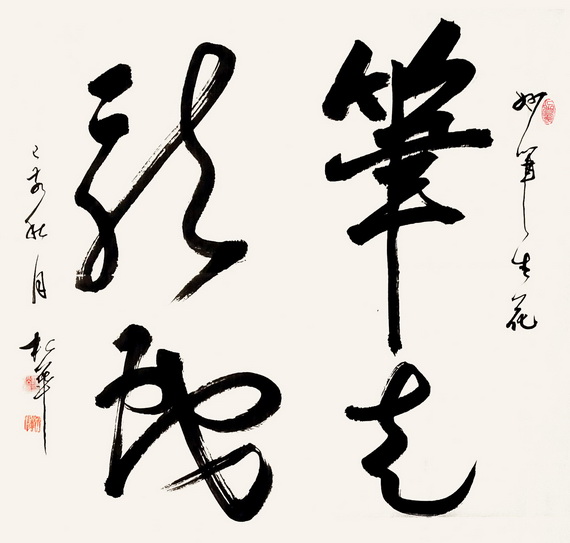 妙筆生花
筆走
龍蛇
己亥秋月 松華